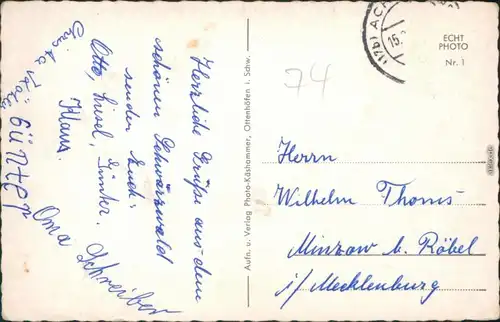 Herzliche Grüße aus dem
schönen Schwarzwald
senden Euch:
Otto, Liesel, Günter.
Klaus.
Oma Schreiber
Christa
Günter
Aufn. u. Verlag Photo-Käshammer, Ottenhöfen i. Schw.
(17b) ACH
15.
ECHT
PHOTO
Nr. 1
74
Herrn
Wilhelm Thoms
Minzow b. Röbel
i/Mecklenburg